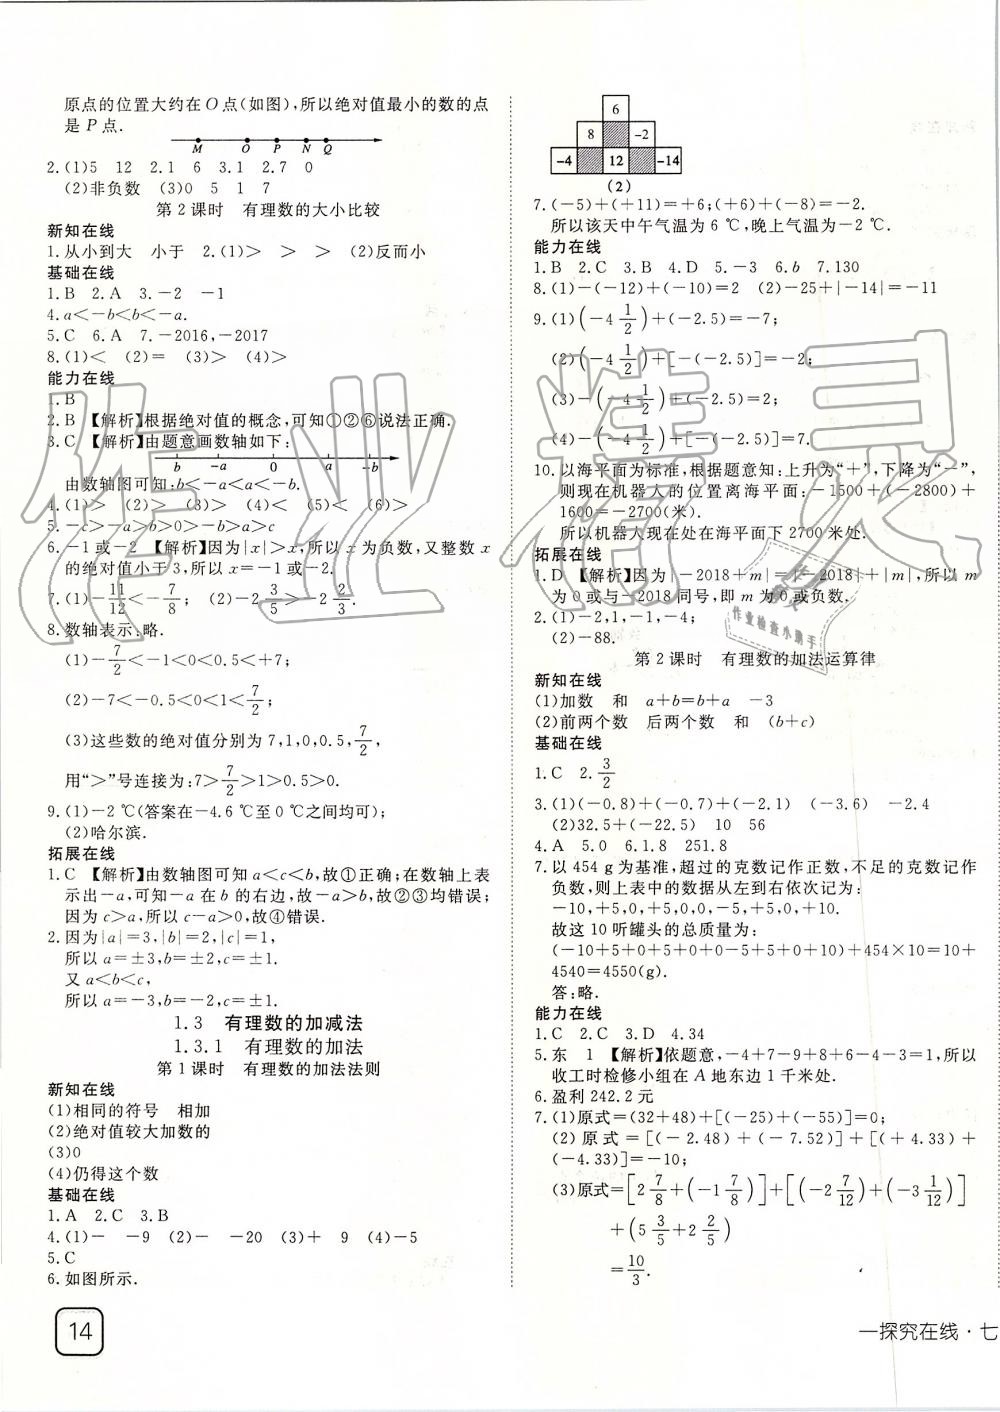 原点的位置大约在O点(如图),所以绝对值最小的数的点
是P点.
M O P N Q
2.(1)5 12 2.1 6 3.1 2.7 0
(2)非负数 (3)0 5 1 7
第2课时 有理数的大小比较
新知在线
1.从小到大 小于 2.(1)> > > (2)反而小
基础在线
1.B 2.A 3.-2 -1
4.a<-b<b<-a.
5.C 6.A 7.-2016,-2017
8.(1)< (2)= (3)> (4)>
能力在线
1.B
2.B 【解析】根据绝对值的概念,可知①②⑥说法正确.
3.C 【解析】由题意画数轴如下:
b -a 0 a -b
由数轴图可知:b<-a<a<-b.
4.(1)> (2)> (3)> (4)< (5)> (6)>
5.-c>-a>b>0>-b>a>c
6.-1或-2 【解析】因为|x|>x,所以x为负数,又整数x
的绝对值小于3,所以x=-1或-2.
7.(1)-11/12<-7/8; (2)-2 3/5>-2 2/3.
8.数轴表示:略.
(1)-7/2<-2<0.5<+7;
(2)-7<-0.5<0<1<7/2;
(3)这些数的绝对值分别为7,1,0,0.5,7/2,
用“>”号连接为:7>7/2>1>0.5>0.
9.(1)-2 ℃(答案在-4.6 ℃至0 ℃之间均可);
(2)哈尔滨.
拓展在线
1.C 【解析】由数轴图可知a<c<b,故①正确;在数轴上表
示出-a,可知-a在b的右边,故-a>b,故②③均错误;
因为c>a,所以c-a>0,故④错误.
2.因为|a|=3,|b|=2,|c|=1,
所以a=±3,b=±2,c=±1.
又a<b<c,
所以a=-3,b=-2,c=±1.
1.3 有理数的加减法
1.3.1 有理数的加法
第1课时 有理数的加法法则
新知在线
(1)相同的符号 相加
(2)绝对值较大加数的
(3)0
(4)仍得这个数
基础在线
1.A 2.C 3.B
4.(1)- -9 (2)- -20 (3)+ 9 (4)-5
5.C
6.如图所示.
14
6
8 -2
-4 12 -14
(2)
7.(-5)+(+11)=+6;(+6)+(-8)=-2.
所以该天中午气温为6 ℃,晚上气温为-2 ℃.
能力在线
1.B 2.C 3.B 4.D 5.-3 6.b 7.130
8.(1)-(-12)+(-10)=2 (2)-25+|-14|=-11
9.(1)(-4 1/2)+(-2.5)=-7;
(2)(-4 1/2)+[-(-2.5)]=-2;
(3)-(-4 1/2)+(-2.5)=2;
(4)-(-4 1/2)+[-(-2.5)]=7.
10.以海平面为标准,根据题意知:上升为“+”,下降为“-”,
则现在机器人的位置离海平面:-1500+(-2800)+
1600=-2700(米).
所以机器人现在处在海平面下2700米处.
拓展在线
1.D 【解析】因为|-2018+m|=|-2018|+|m|,所以m
为0或与-2018同号,即m为0或负数.
2.(1)-2,1,-1,-4;
(2)-88.
第2课时 有理数的加法运算律
新知在线
(1)加数 和 a+b=b+a -3
(2)前两个数 后两个数 和 (b+c)
基础在线
1.C 2.3/2
3.(1)(-0.8)+(-0.7)+(-2.1) (-3.6) -2.4
(2)32.5+(-22.5) 10 56
4.A 5.0 6.1.8 251.8
7.以454 g为基准,超过的克数记作正数,不足的克数记作
负数,则上表中的数据从左到右依次记为:
-10,+5,0,+5,0,0,-5,+5,0,+10.
故这10听罐头的总质量为:
(-10+5+0+5+0+0-5+5+0+10)+454×10=10+
4540=4550(g).
答:略.
能力在线
1.C 2.C 3.D 4.34
5.东 1 【解析】依题意,-4+7-9+8+6-4-3=1,所以
收工时检修小组在A地东边1千米处.
6.盈利242.2元
7.(1)原式=(32+48)+[(-25)+(-55)]=0;
(2)原式=[(-2.48)+(-7.52)]+[(+4.33)+
(-4.33)]=-10;
(3)原式=[2 7/8+(-1 7/8)]+[(-2 7/12)+(-3 1/12)]
+(5 3/5+2 2/5)
=10/3.
一探究在线·七
作业精灵
作业检查小助手